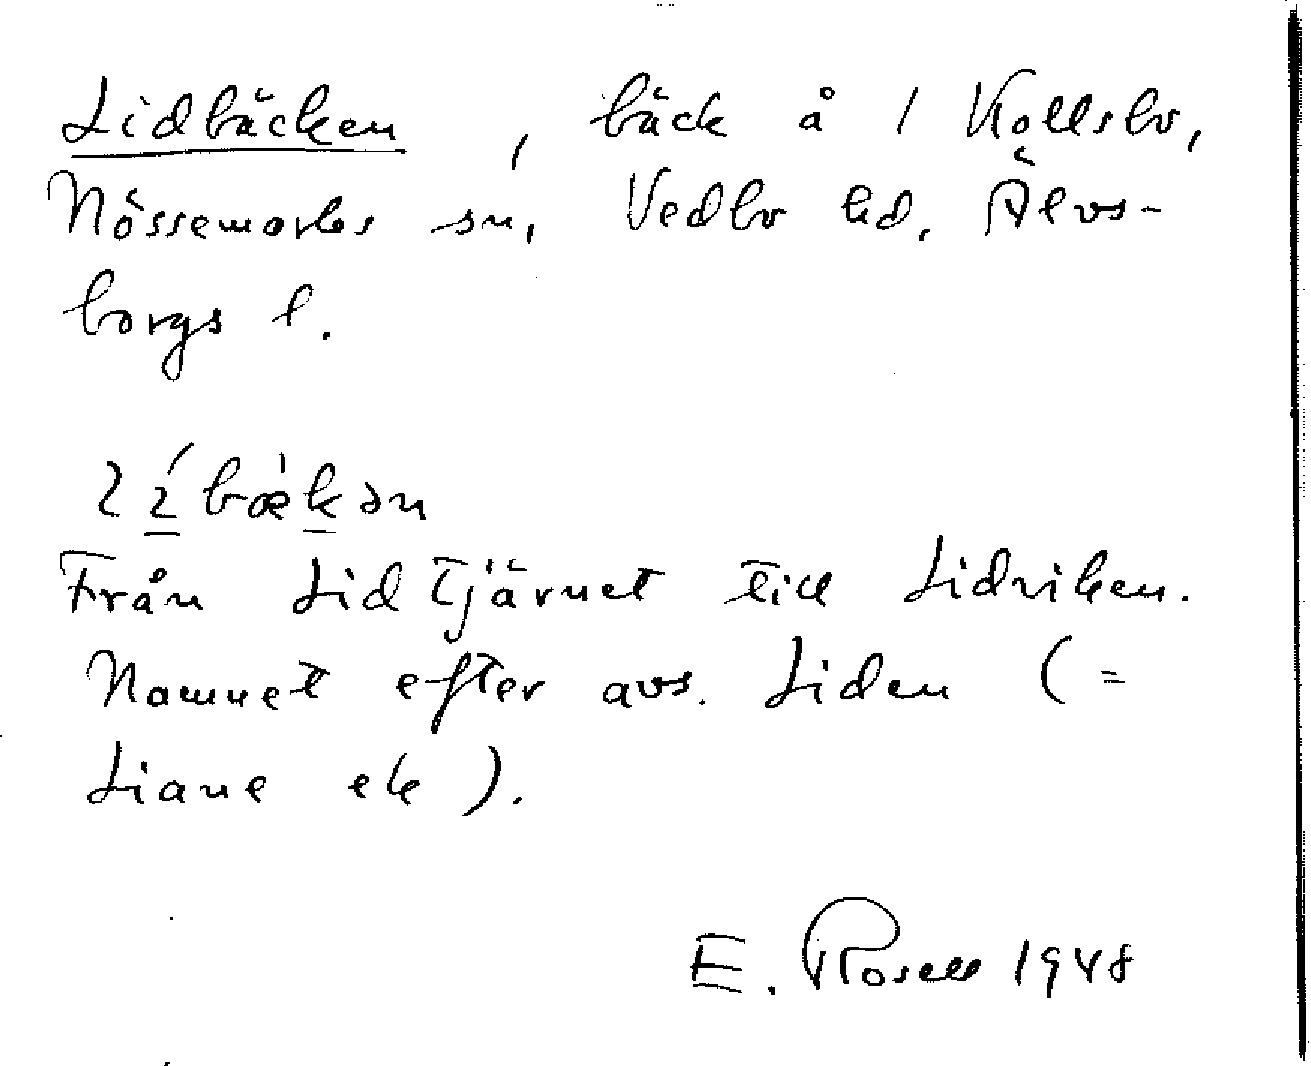 Lidbäcken, bäck å 1 Kollsbo,
Nössemarks sn, Vedbo hd, Älvs-
borgs l.
Från Lid Tjärnet till Lidviken.
Namnet efter avs. Liden (=
Liane ek).
E. Rosell 1948